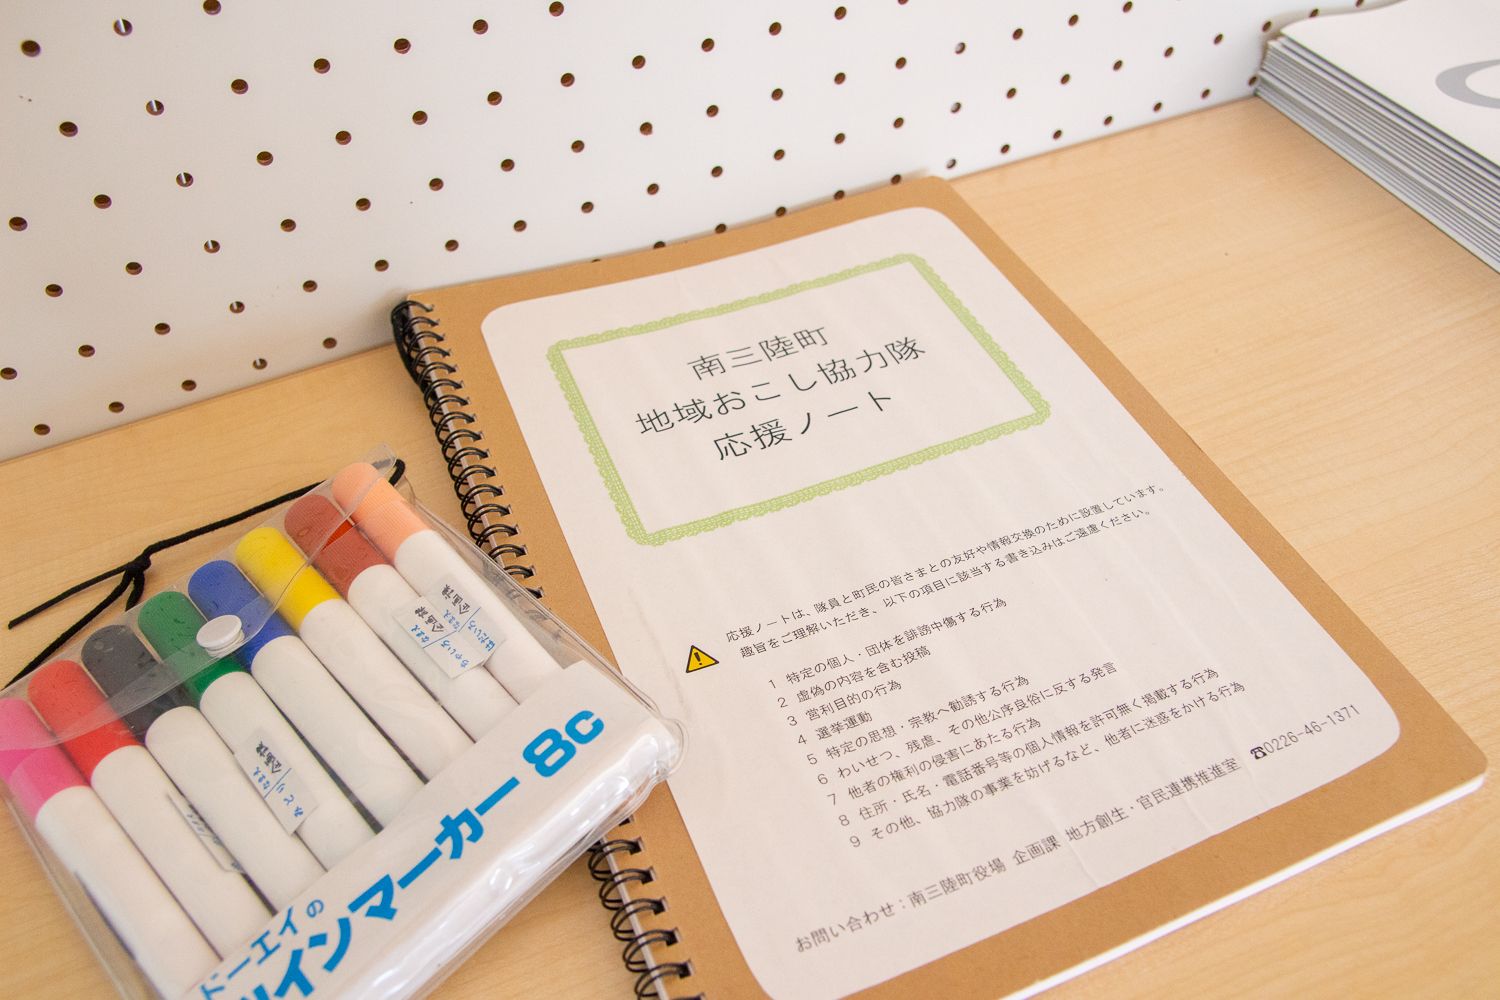 南三陸町
地域おこし協力隊
応援ノート
応援ノートは、隊員と町民の皆さまとの友好や情報交換のために設置しています。
趣旨をご理解いただき、以下の項目に該当する書き込みはご遠慮ください。
1 特定の個人・団体を誹謗中傷する行為
2 虚偽の内容を含む投稿
3 営利目的の行為
4 選挙運動
5 特定の思想・宗教へ勧誘する行為
6 わいせつ、残虐、その他公序良俗に反する発言
7 他者の権利の侵害にあたる行為
8 住所・氏名・電話番号等の個人情報を許可無く掲載する行為
9 その他、協力隊の事業を妨げるなど、他者に迷惑をかける行為
お問い合わせ：南三陸町役場 企画課 地方創生・官民連携推進室 ☎0226-46-1371
ちゃいろ
なまえ
企画課
はだいろ
なまえ
企画課
みどり
なまえ
企画課
ーエイの
インマーカー 8c